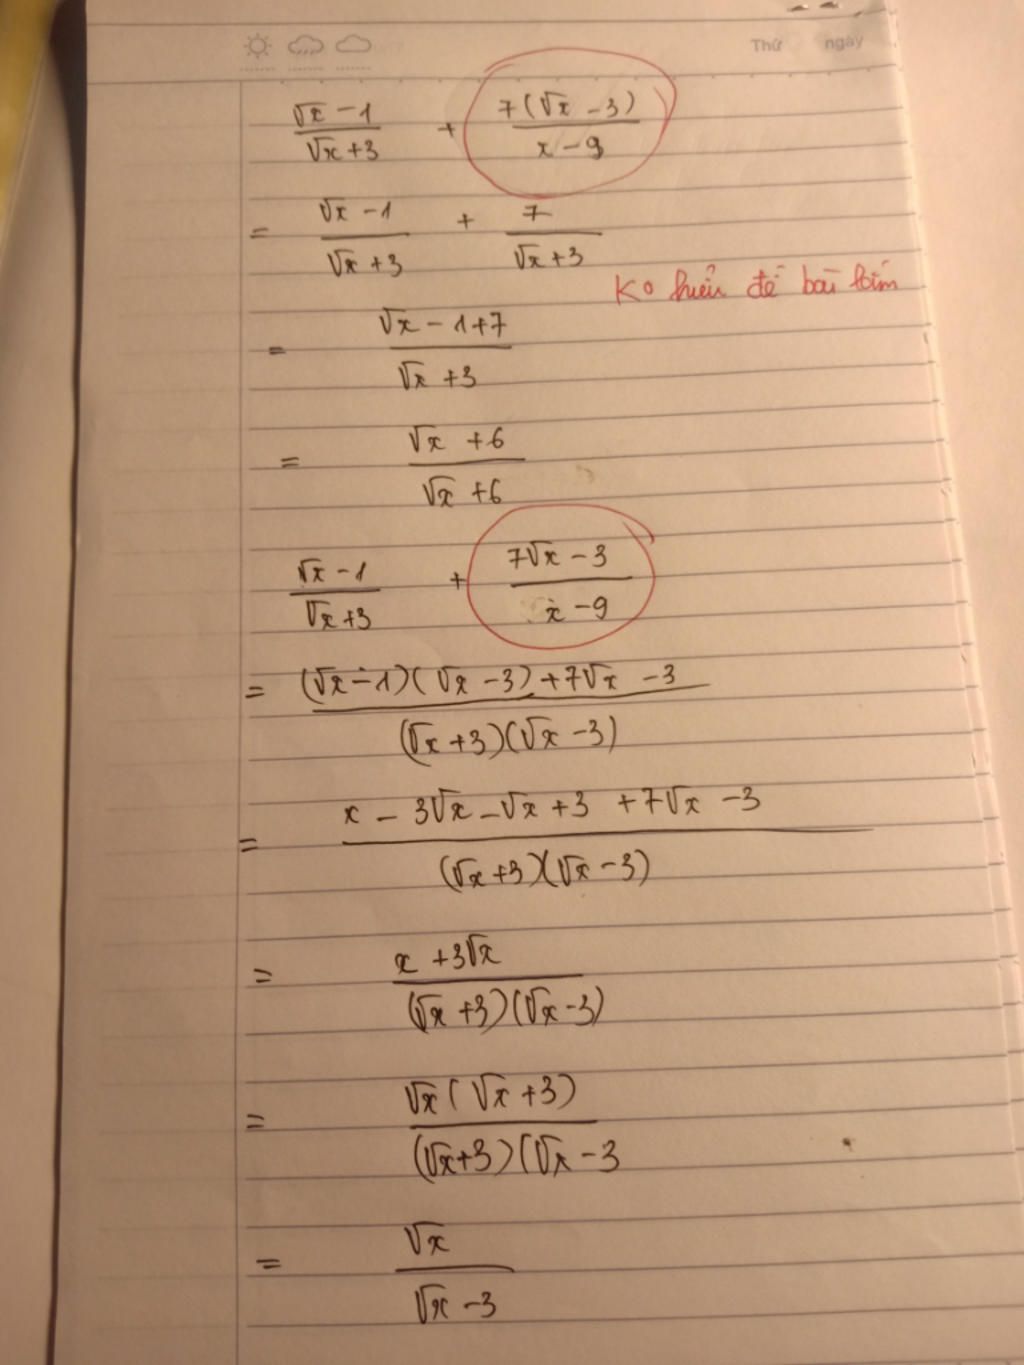 Thứ ngày
(√x − 1)/(√x + 3) + 7(√x − 3)/(x − 9)
= (√x − 1)/(√x + 3) + 7/(√x + 3)
Ko hiểu đề bài lắm
= (√x − 1 + 7)/(√x + 3)
= (√x + 6)/(√x + 6)
(√x − 1)/(√x + 3) + (7√x − 3)/(x − 9)
= ((√x − 1)(√x − 3) + 7√x − 3)/((√x + 3)(√x − 3))
= (x − 3√x − √x + 3 + 7√x − 3)/((√x + 3)(√x − 3))
= (x + 3√x)/((√x + 3)(√x − 3))
= (√x(√x + 3))/((√x + 3)(√x − 3)
= √x/(√x − 3)